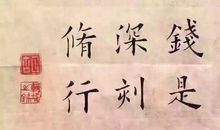 錢是
深刻
脩行